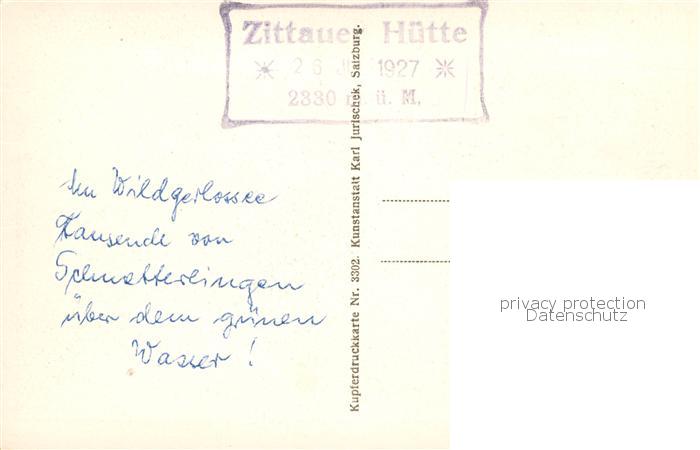 Zittauer Hütte
26 1927
2330 m ü. M.
Am Wildgerlossee
Tausende von
Schmetterlingen
über dem grünen
Wasser!
Kupferdruckkarte Nr. 3302. Kunstanstalt Karl Jurischek, Salzburg.
privacy protection
Datenschutz